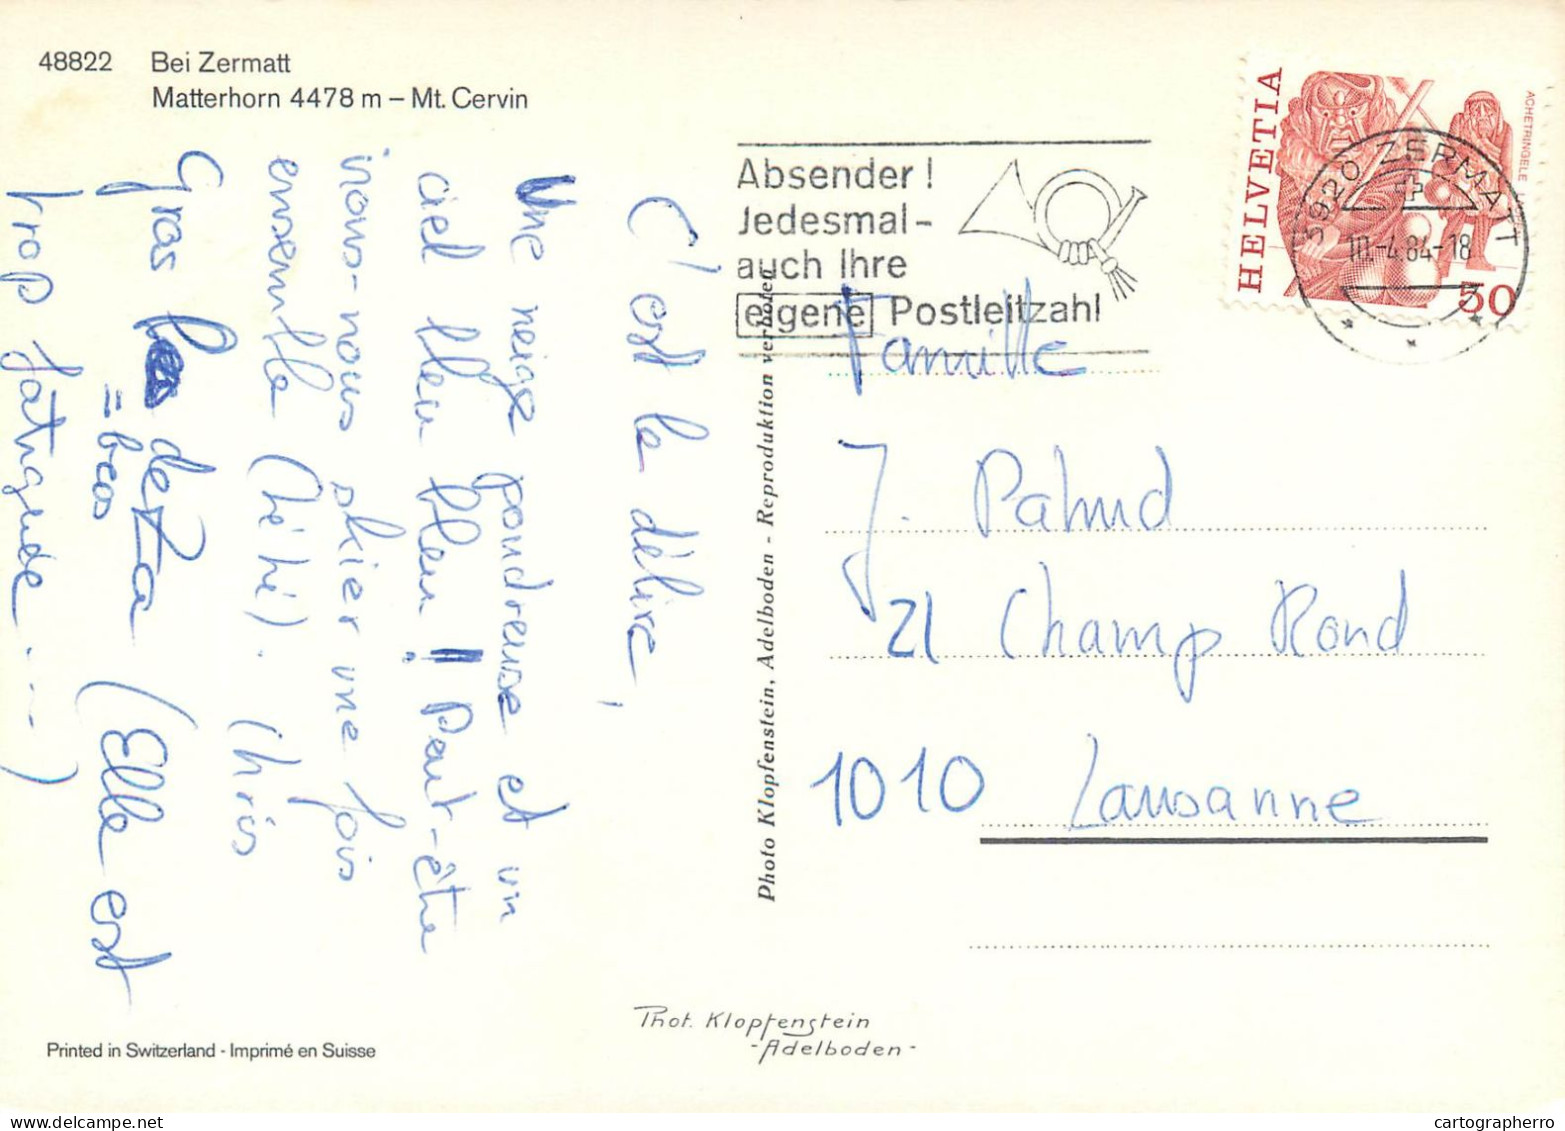 48822 Bei Zermatt
Matterhorn 4478 m – Mt. Cervin
C'est le délire,
Une neige poudreuse et un
ciel bleu bleu !! Peut-être
irions-nous skier une fois
ensemble (héhé). Chris
Gros de Za (Elle est
= becs
trop fatiguée ....)
Printed in Switzerland - Imprimé en Suisse
Phot. Klopfenstein
-Adelboden-
Photo Klopfenstein, Adelboden - Reproduktion verboten
Absender!
Jedesmal-
auch Ihre
eigene Postleitzahl
HELVETIA
ACHETRINGELE
50
3920 ZERMATT
10.-4.84-18
Famille
J. Pahud
21 Champ Rond
1010 Lausanne
cartographerro